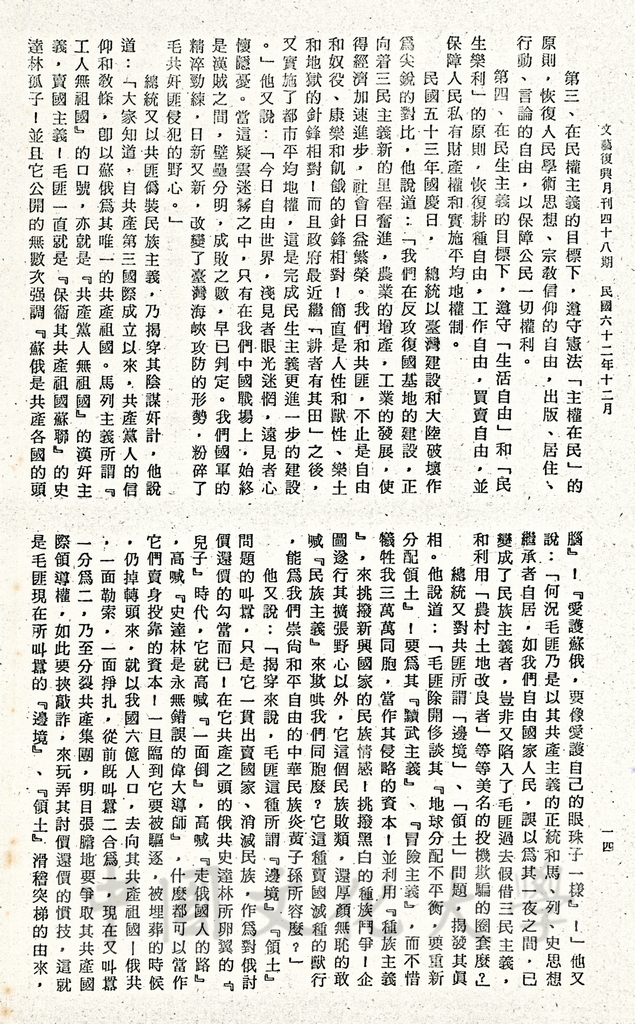 文藝復興月刊四十八期　民國六十二年十二月
一四
第三、在民權主義的目標下，遵守憲法「主權在民」的
原則，恢復人民學術思想、宗教信仰的自由，出版、居住、
行動、言論的自由，以保障公民一切權利。
第四、在民生主義的目標下，遵守「生活自由」和「民
生樂利」的原則，恢復耕種自由，工作自由，買賣自由，並
保障人民私有財產權和實施平均地權制。
民國五十三年國慶日，　總統以臺灣建設和大陸破壞作
爲尖銳的對比，他說道：「我們在反攻復國基地的建設，正
向着三民主義新的里程奮進，農業的增產，工業的發展，使
得經濟加速進步，社會日益繁榮。我們和共匪，不止是自由
和奴役、康樂和飢餓的針鋒相對！簡直是人性和獸性、樂土
和地獄的針鋒相對！而且政府最近繼「耕者有其田」之後，
又實施了都市平均地權，這是完成民生主義更進一步的建設
。」他又說：「今日自由世界，淺見者眼光迷惘，遠見者心
懷隱憂。當這疑雲迷霧之中，只有在我們中國戰場上，始終
是漢賊之間，壁壘分明，成敗之數，早已判定。我們國軍的
精淬勁練，日新又新，改變了臺灣海峽攻防的形勢，粉碎了
毛共奸匪侵犯的野心。」
總統又以共匪僞裝民族主義，乃揭穿其陰謀奸計，他說
道：「大家知道，自共產第三國際成立以來，共產黨人的信
仰和教條，卽以蘇俄爲其唯一的共產祖國。馬列主義所謂『
工人無祖國』的口號，亦就是『共產黨人無祖國』的漢奸主
義，賣國主義！毛匪一直就是『保衞其共產祖國蘇聯』的史
達林孤子！並且它公開的無數次强調『蘇俄是共產各國的頭
腦』！『愛護蘇俄，要像愛護自己的眼珠子一樣』！」他又
說：「何況毛匪乃是以其共產主義的正統和馬、列、史思想
繼承者自居，如我們自由國家人民，誤以爲其一夜之間，已
變成了民族主義者，豈非又陷入了毛匪過去假借三民主義，
和利用「農村土地改良者」等等美名的投機欺騙的圈套麼？」
總統又對共匪所謂「邊境」、「領土」問題，揭發其眞
相。他說道：「毛匪除開侈談其『地球分配不平衡，要重新
分配領土』！要爲其『黷武主義』、『冒險主義』，而不惜
犧牲我三萬萬同胞，當作其侵略的資本！並利用『種族主義
』，來挑撥新興國家的民族情感！挑撥黑白的種族鬥爭！企
圖遂行其擴張野心以外，它這個民族敗類，還厚顏無恥的敢
喊『民族主義』來欺哄我們同胞麼？它這種賣國滅種的獸行
，能爲我們崇尚和平自由的中華民族炎黃子孫所容麼？」
他又說：「揭穿來說，毛匪這種所謂『邊境』『領土』
問題的叫囂，只是它一貫出賣國家、消滅民族，作爲對俄討
價還價的勾當而已！在它共產之頭的俄共史達林所卵翼的『
兒子』時代，它就高喊『一面倒』，高喊『走俄國人的路』
，高喊『史達林是永無錯誤的偉大導師』，什麼都可以當作
它們賣身投靠的資本！一旦臨到它要被驅逐、被埋葬的時候
，仍掉轉頭來，就以我國六億人口，去向其共產祖國！俄共
，一面勒索，一面掙扎，從前旣叫囂二合爲一，現在又叫囂
一分爲二，乃至分裂共產集團，明目張膽地要爭取其共產國
際領導權，如此要挾敲詐，來玩弄其討價還價的慣技，這就
是毛匪現在所叫囂的『邊境』、『領土』滑稽突梯的由來，
中國文化大學